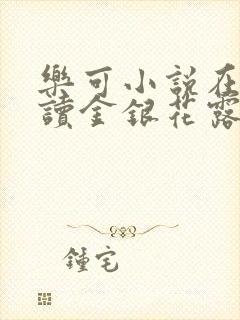 樂可小說在
讀金銀花露
鍾宅